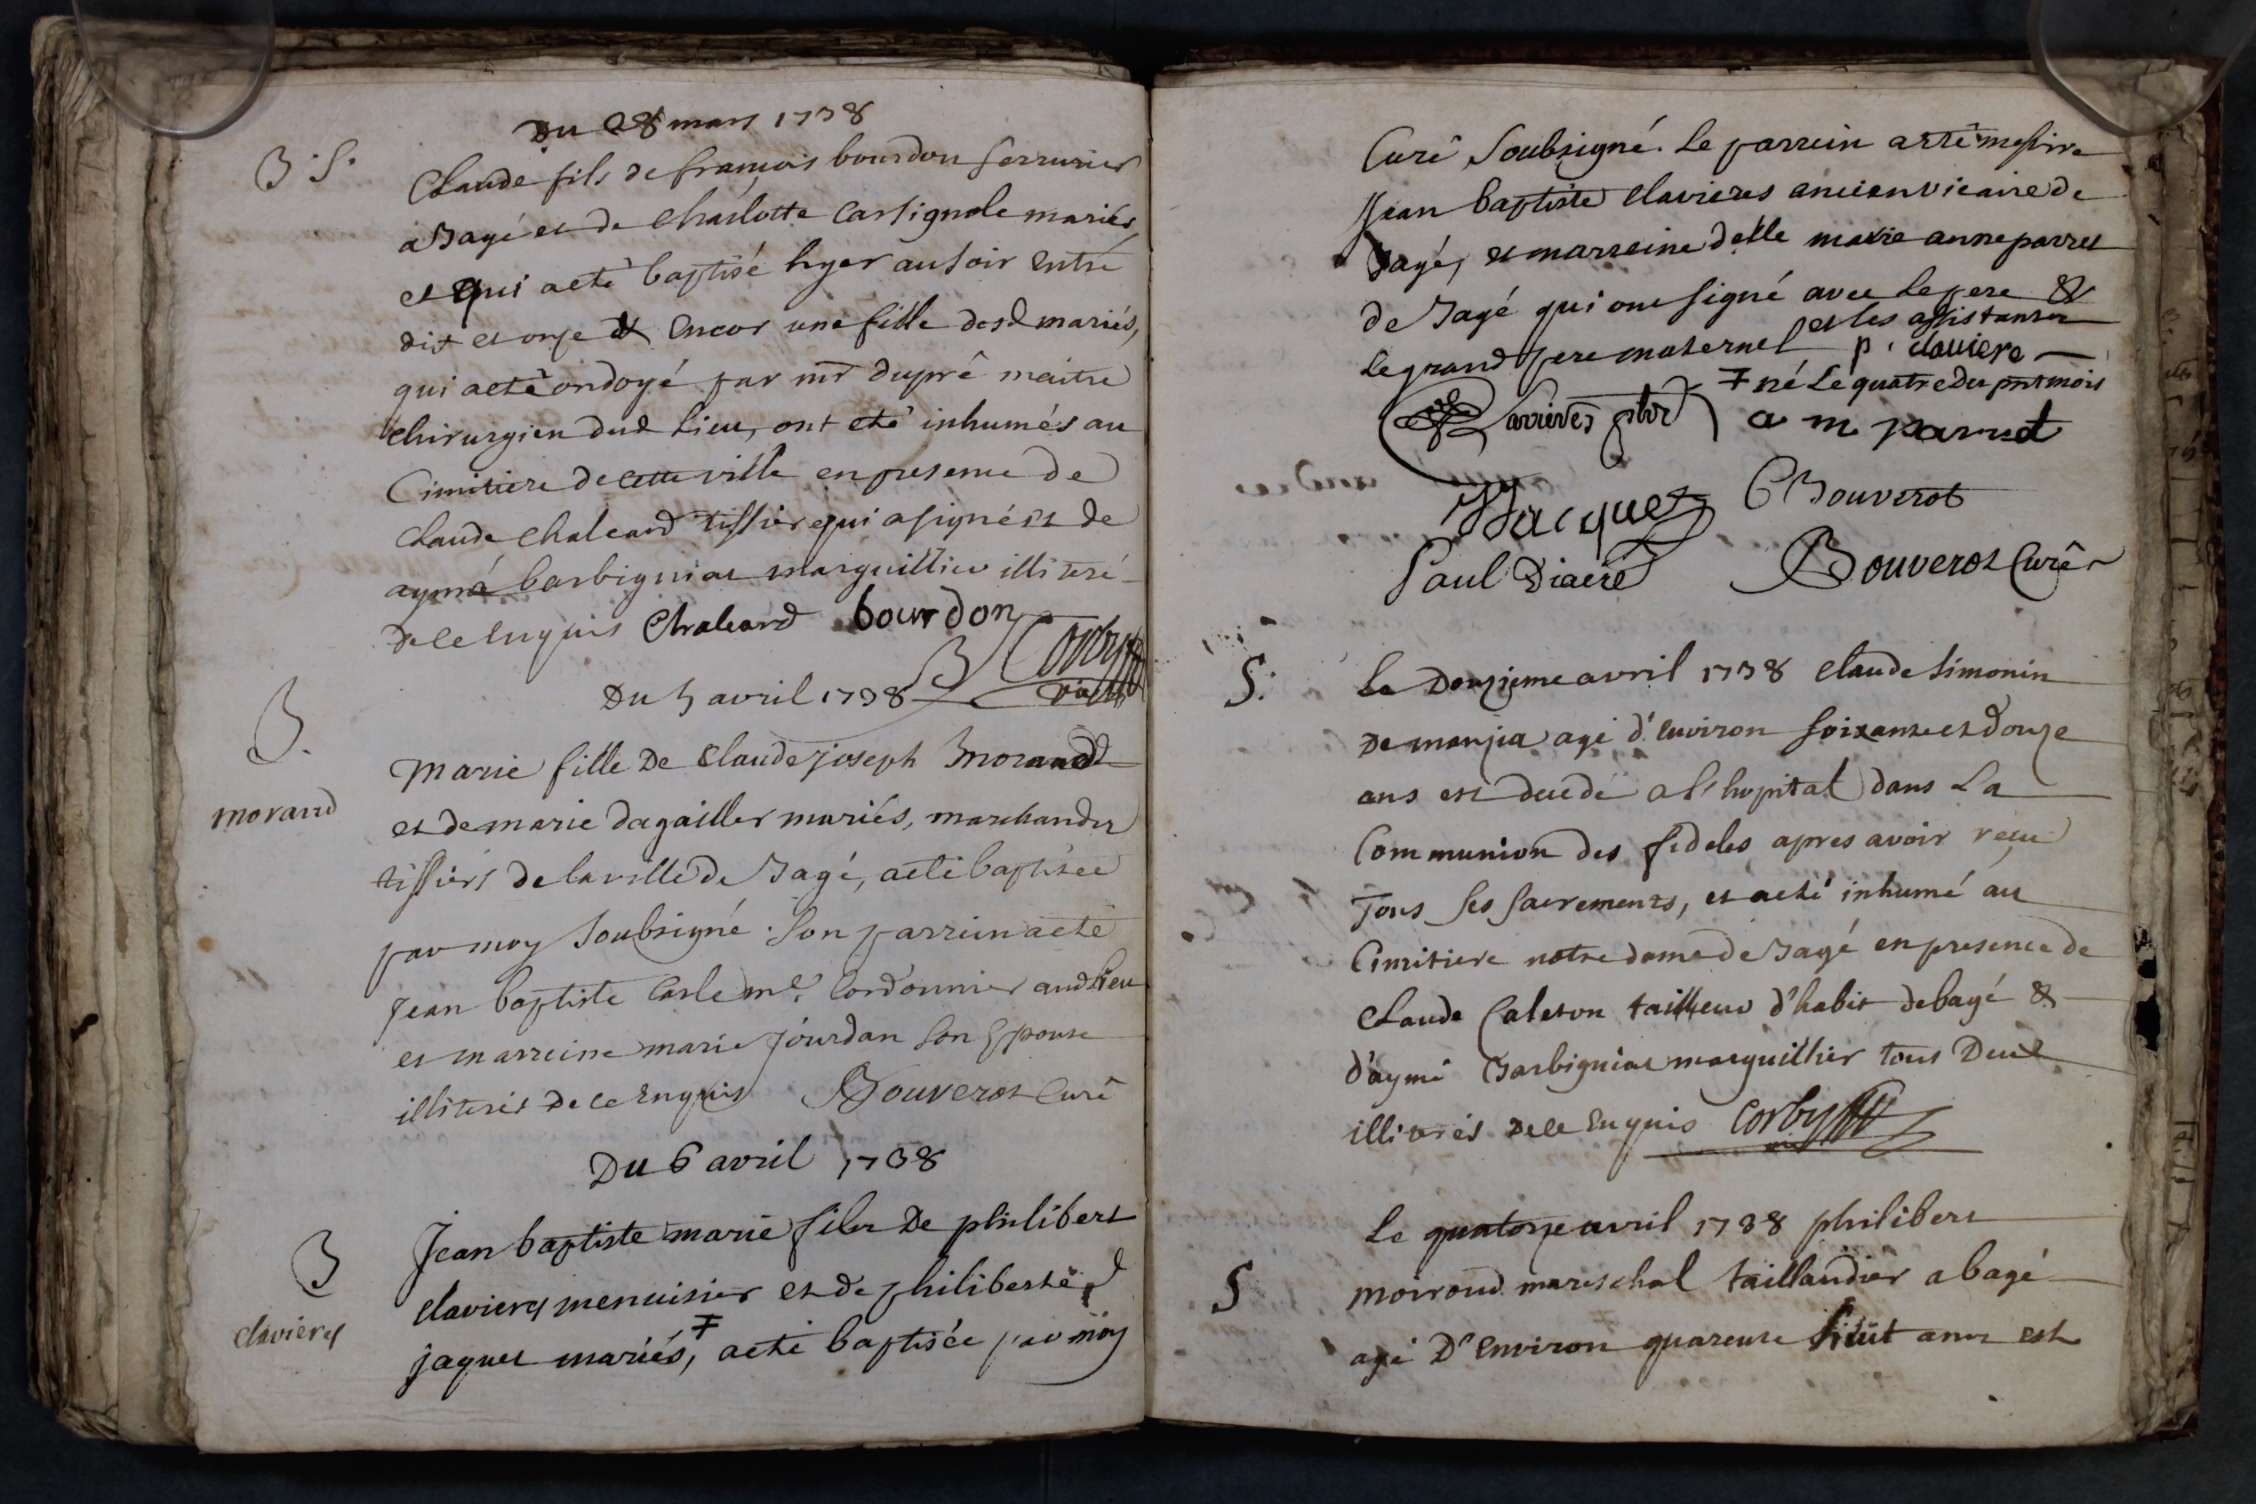 Du 28 mars 1738
B. S.
Claude fils de françois bourdon serrurier
a Bagé et de Charlotte Cassignole mariés,
et qui a eté baptisé hyer au soir entre
dix et onze & encor une fille desd mariés,
qui a eté ondoyé par mr dupré maitre
chirurgien dud Lieu, ont eté inhumés au
Cimitiere de cette ville en presence de
Claude Chaleard tissier qui a signé et de
aymé barbigniat marguillier illiteré
de ce enquis Chaleard bourdon
Corby
vic
Du 5 avril 1738
B.
morand
Marie fille De Claude joseph Morand
et de marie dagailler mariés, marchands
tissiers de la ville de Bagé, a eté baptisée
par moy soubsigné. son parrein a eté
jean baptiste Carle me. Cordonnier aud Lieu
et marreine marie jourdan son Epouse
illiterés de ce enquis Bouverot Curé
Du 6 avril 1738
B
Clavieres
Jean baptiste marie fils De philibert
Clavieres menuisier et de philiberte
jaques mariés, ǂ a eté baptisée par moy
Curé Soubsigné. Le parrein a eté messire
Jean baptiste Clavieres ancien vicaire de
Bagé, et marreine delle marie anne parret
de Bagé qui ont signé avec le pere &
et les assistants
Le grand pere maternel p. claviere
ǂ né Le quatre du pnt mois
a m parret
Jacques C Bouverot
Paul Diacre Bouverot Curé
S.
Le Douzieme avril 1738 Claude simonin
De manzia agé d'environ soixante et douze
ans est decedé a l'hopital dans La
Communion des fideles apres avoir reçu
Tous ses sacrements, et a eté inhumé au
Cimitiere notre dame de Bagé en presence de
Claude Caleton tailleur d'habit de bagé &
d'aymé Barbigniat marguillier tous Deux
illiterés de ce enquis Corby
Le quatorze avril 1738 philibert
S
moiroud mareschal taillandier a bagé
agé D'environ quarente huit ans est